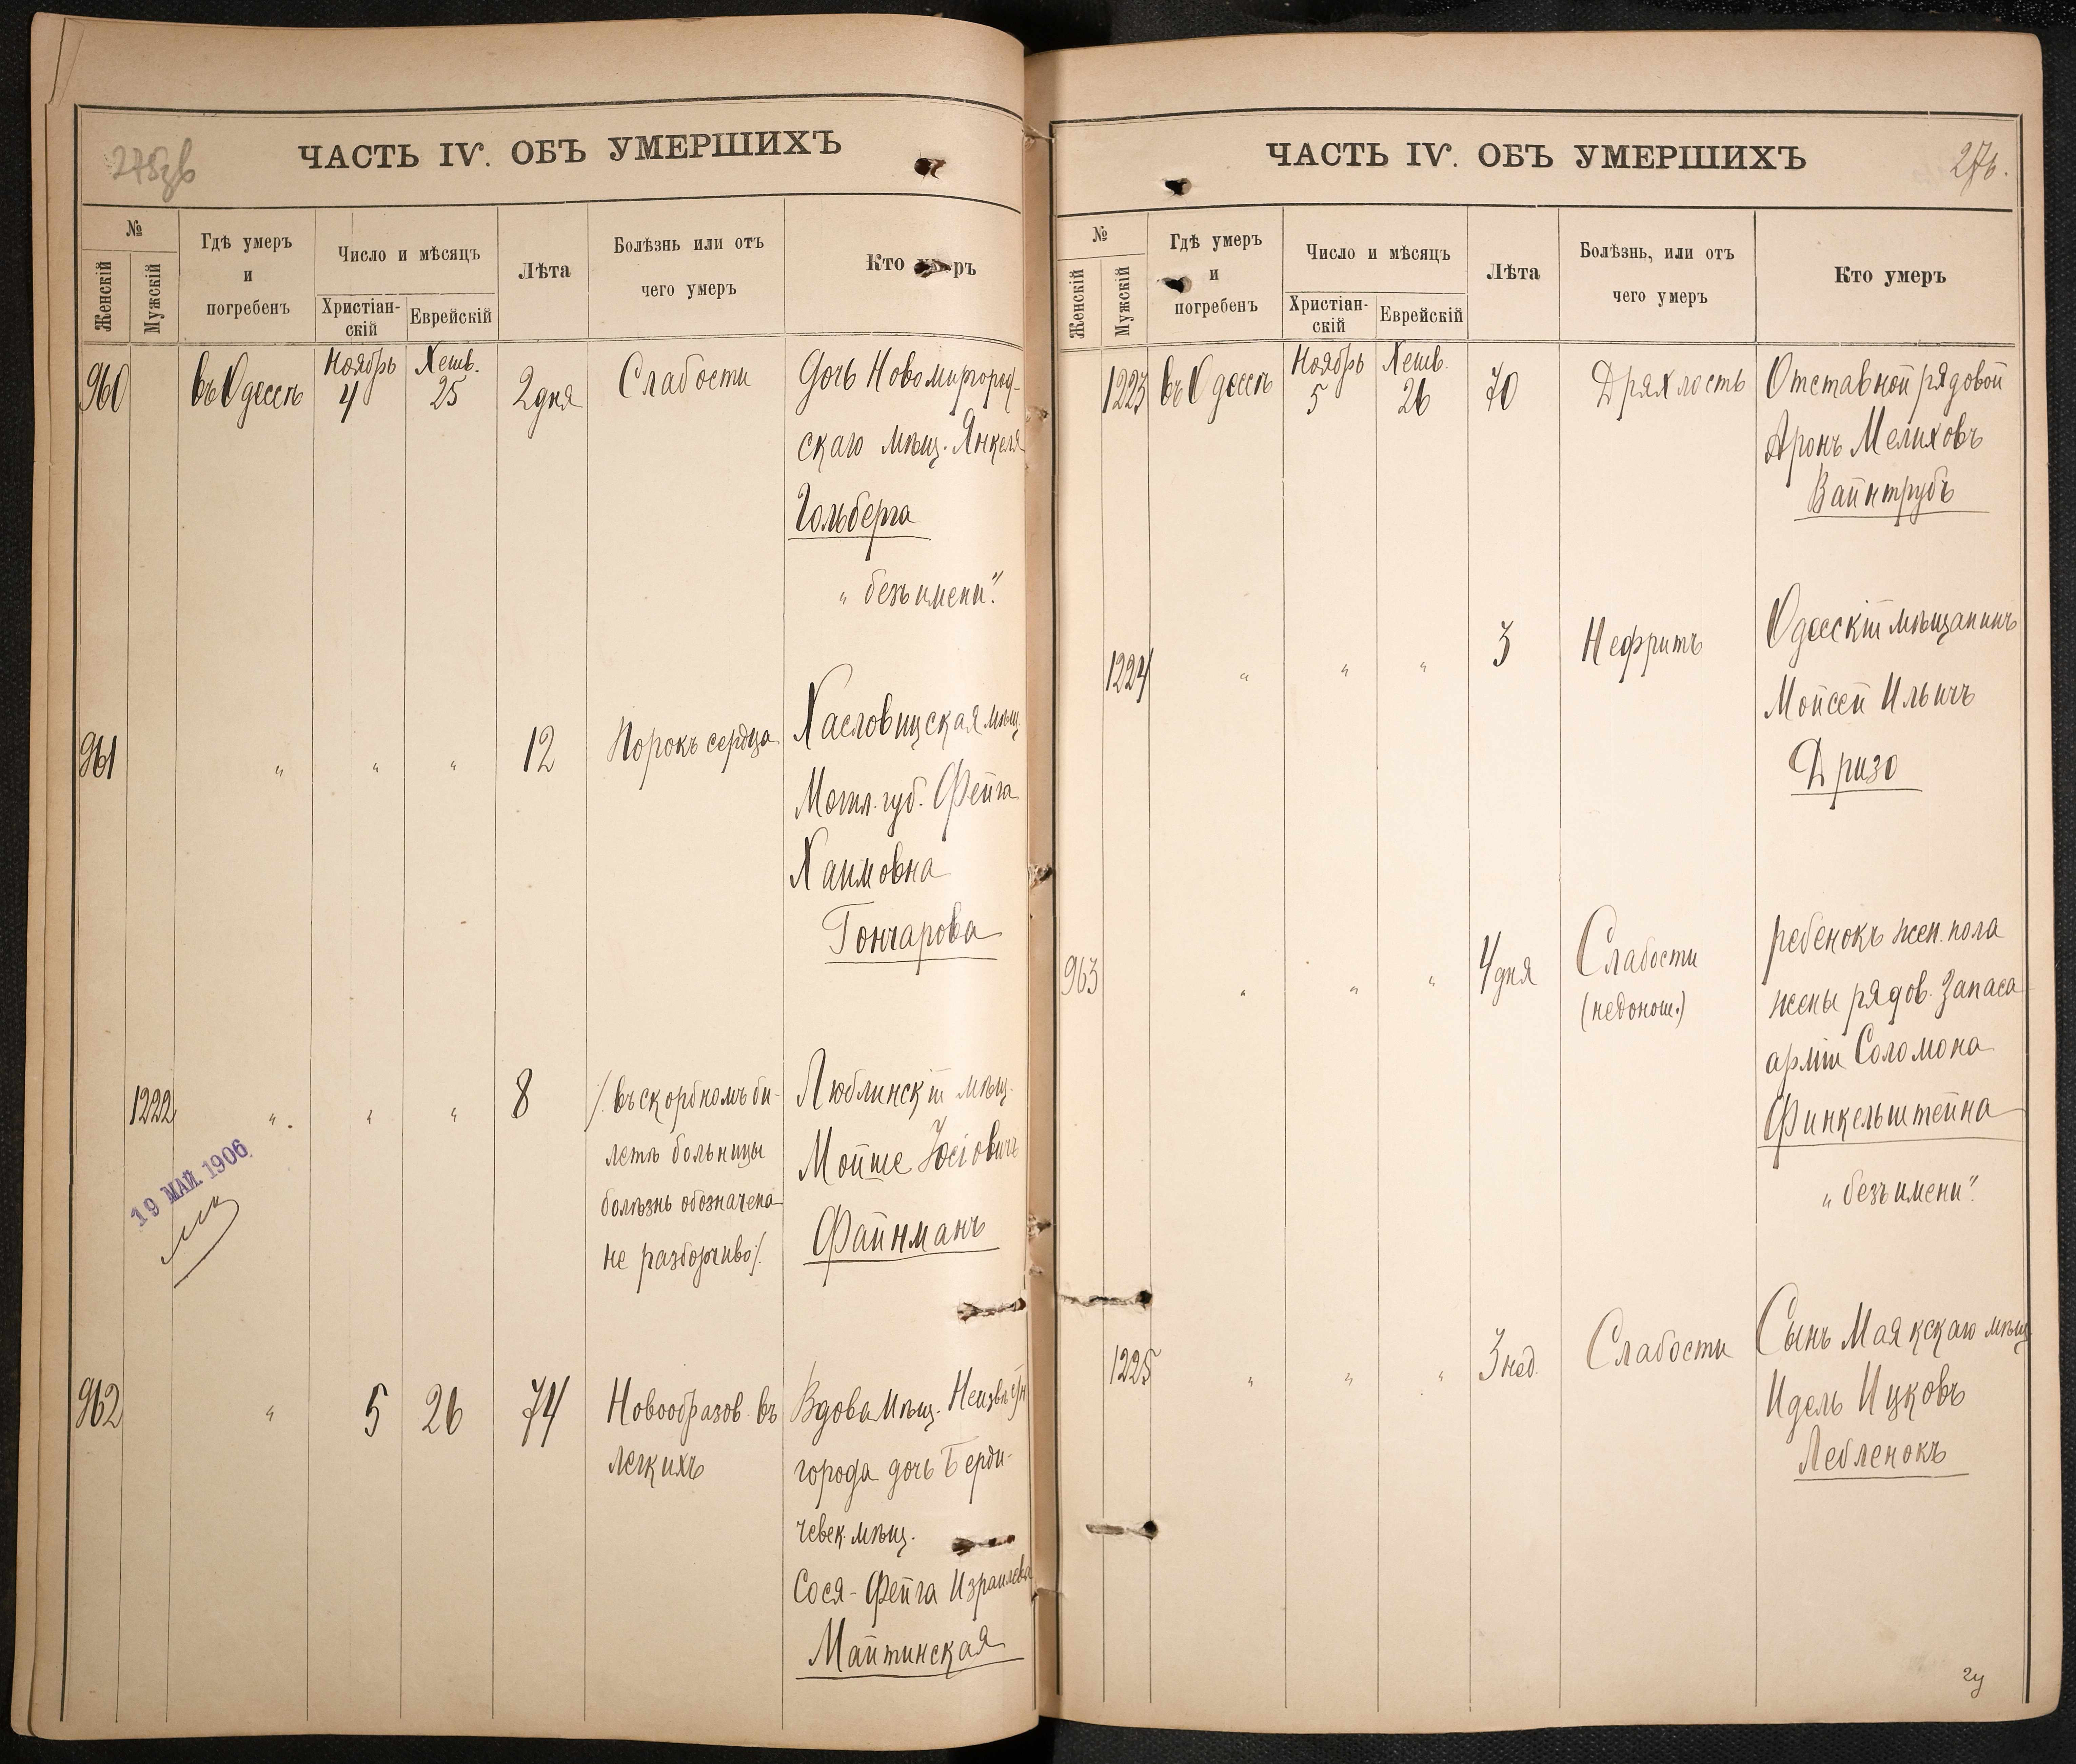 ЧАСТЬ IV. ОБЪ УМЕРШИХЪ
№
Женскій
Мужскій
Гдѣ умеръ
и
погребенъ
Число и мѣсяцъ
Христіан-
скій
Еврейскій
Лѣта
Болѣзнь или отъ
чего умеръ
Кто умеръ
960
въ Одессѣ
Ноябрь
4
Хешв.
25
2 дня
Слабости
Дочь Новомиргород-
скаго мѣщ. Янкеля
Гольберга
„безъ имени“.
961
„ „ „
12
Порокъ сердца
Хасловицская мѣщ.
Могил. губ. Фейга
Хаимовна
Гончарова
1222
„ „ „
8
/. въ скорбномъ би-
летѣ больницы
болѣзнь обозначена
не разборчиво /.
Люблинскій мѣщ.
Мойше Іосіовичъ
Файнманъ
19 МАЙ. 1906
962
„
5
26
74
Новообразов. въ
легкихъ
Вдова мѣщ. Неизвѣстн
города дочь Берди-
чевск. мѣщ.
Сося-Фейга Израилева
Майтинская
ЧАСТЬ IV. ОБЪ УМЕРШИХЪ
276.
№
Женскій
Мужскій
Гдѣ умеръ
и
погребенъ
Число и мѣсяцъ
Христіан-
скій
Еврейскій
Лѣта
Болѣзнь, или отъ
чего умеръ
Кто умеръ
1223
въ Одессѣ
Ноябрь
5
Хешв.
26
70
Дряхлость
Отставной рядовой
Аронъ Мелиховъ
Вайнтрубъ
1224
„ „ „
3
Нефритъ
Одесскій мѣщанинъ
Мойсей Ильичъ
Дризо
963
„ „ „
4 дня
Слабости
(недонош.)
ребенокъ жен. пола
жены рядов. запаса
арміи Соломона
Финкельштейна
„безъ имени“.
1225
„ „ „
3 нед.
Слабости
Сынъ Маякскаго мѣщ
Идель Ицковъ
Лебленокъ